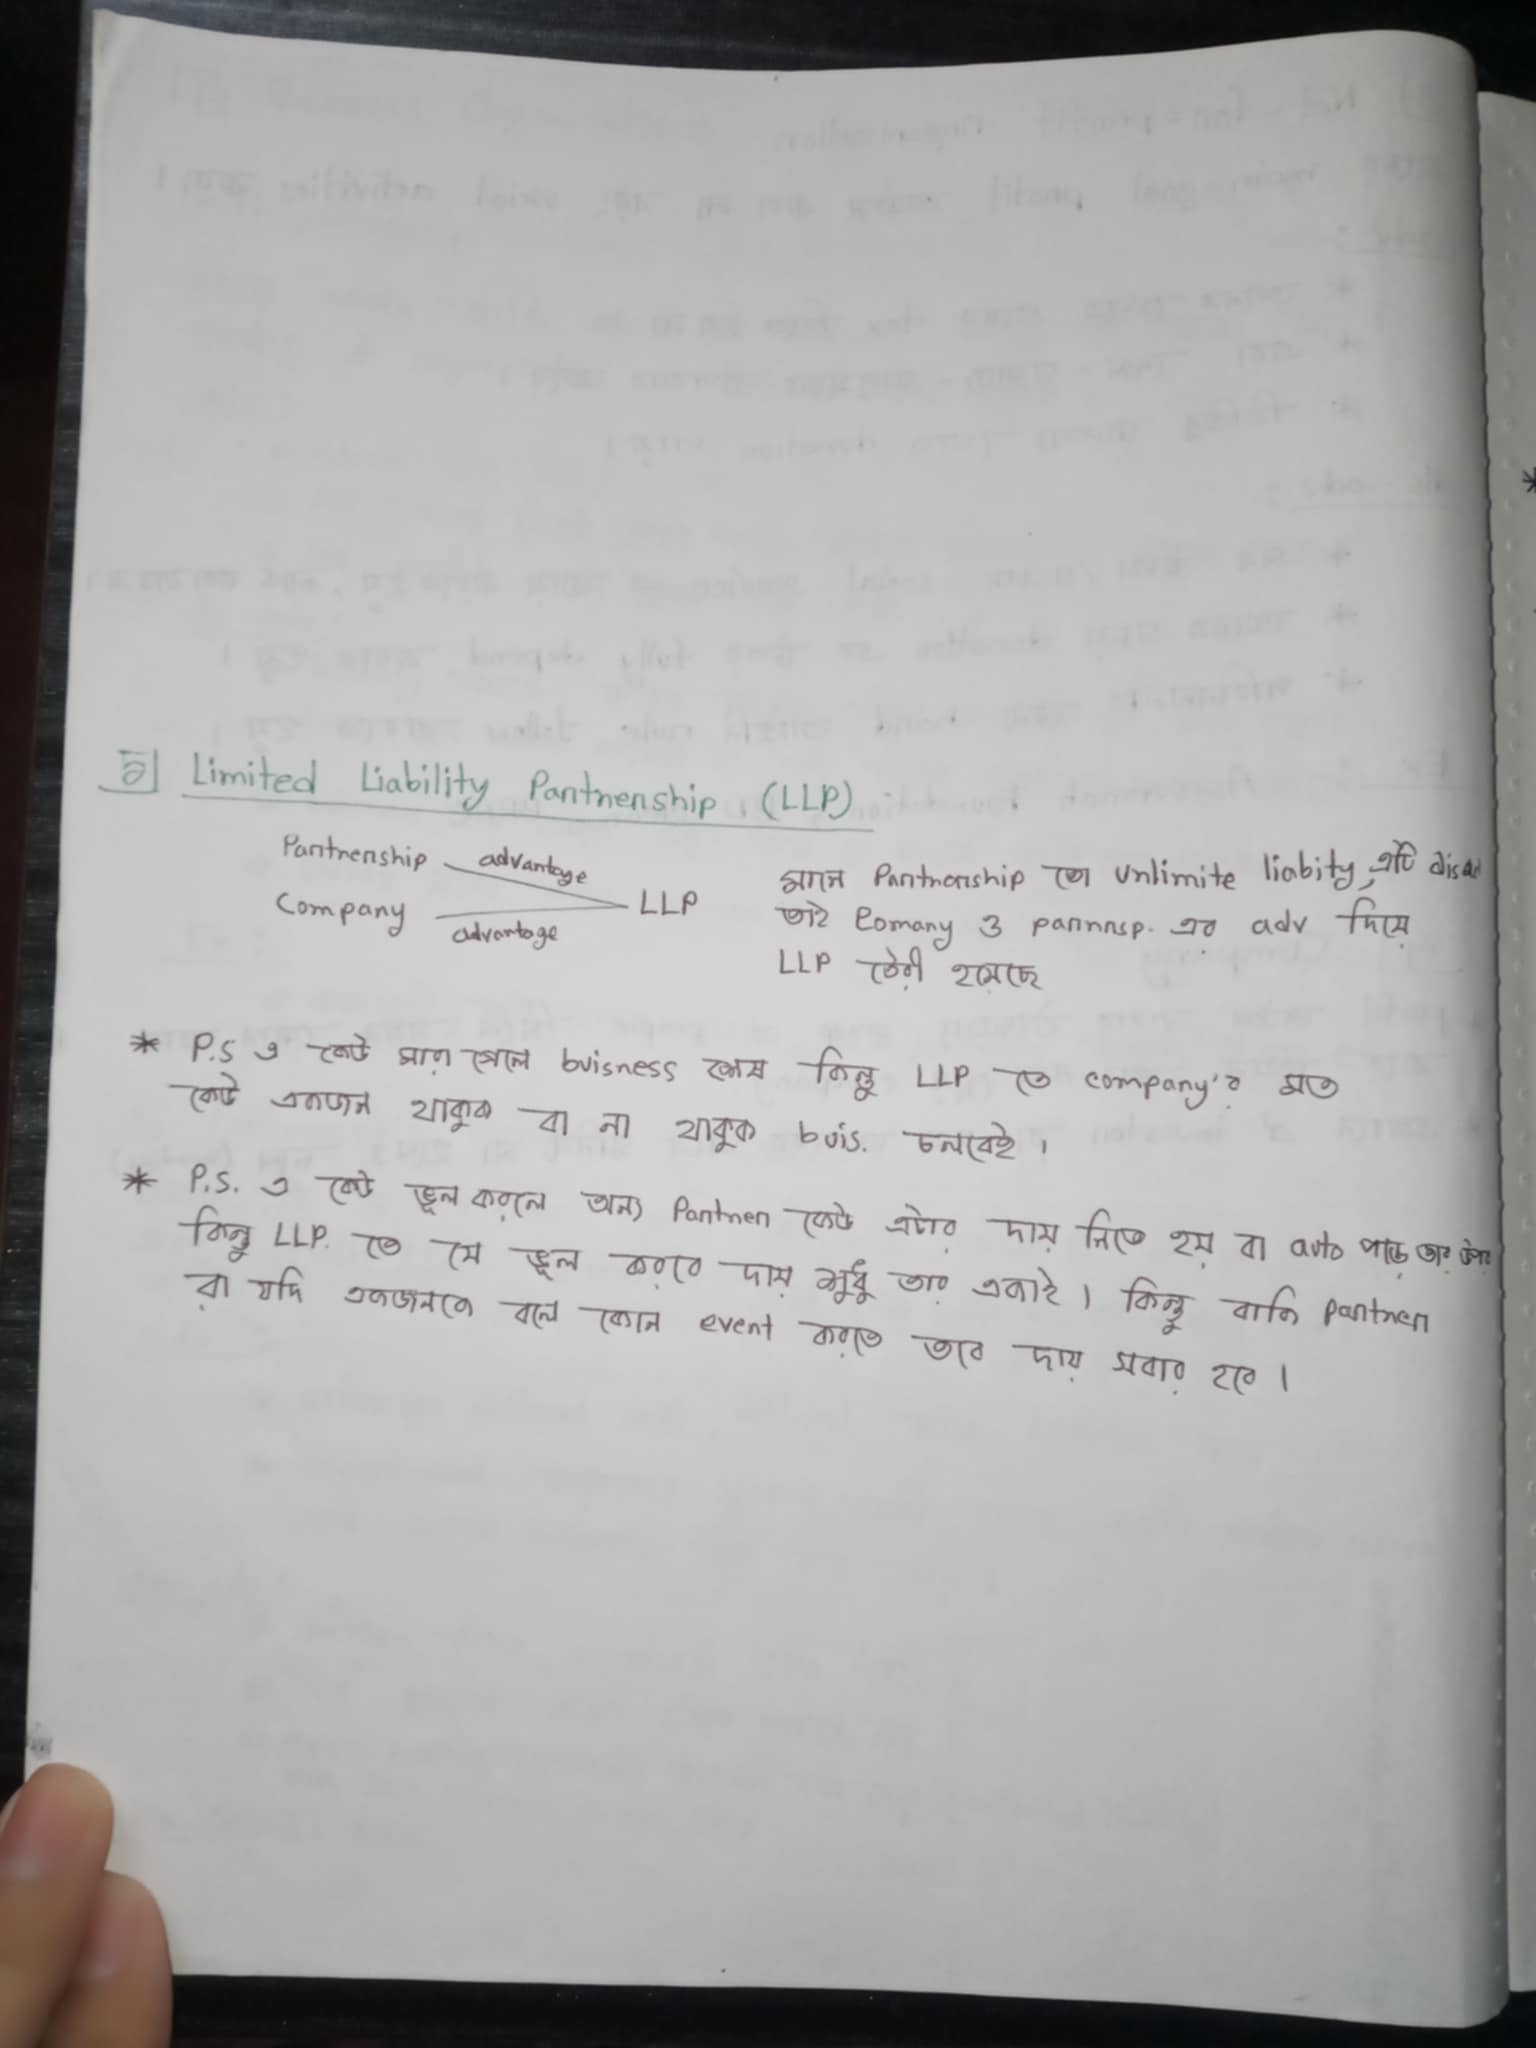 ৯] Limited Liability Partnership (LLP)
Partnership advantage
Company advantage LLP
মানে Partnership তে unlimite liabity, এটি disad
তাই Comany ও parnnsp. এর adv দিয়ে
LLP তৈরী হয়েছে
* P.S এ কেউ মারা গেলে buisness শেষ কিন্তু LLP তে company'র মত
কেউ একজন থাকুক বা না থাকুক buis. চলবেই।
* P.S. এ কেউ ভুল করলে অন্য Partner কেউ এটার দায় নিতে হয় বা auto পড়ে তার উপর
কিন্তু LLP. তে যে ভুল করবে দায় শুধু তার একাই। কিন্তু বাকি partner
রা যদি একজনকে বলে কোন event করতে তবে দায় সবার হবে।